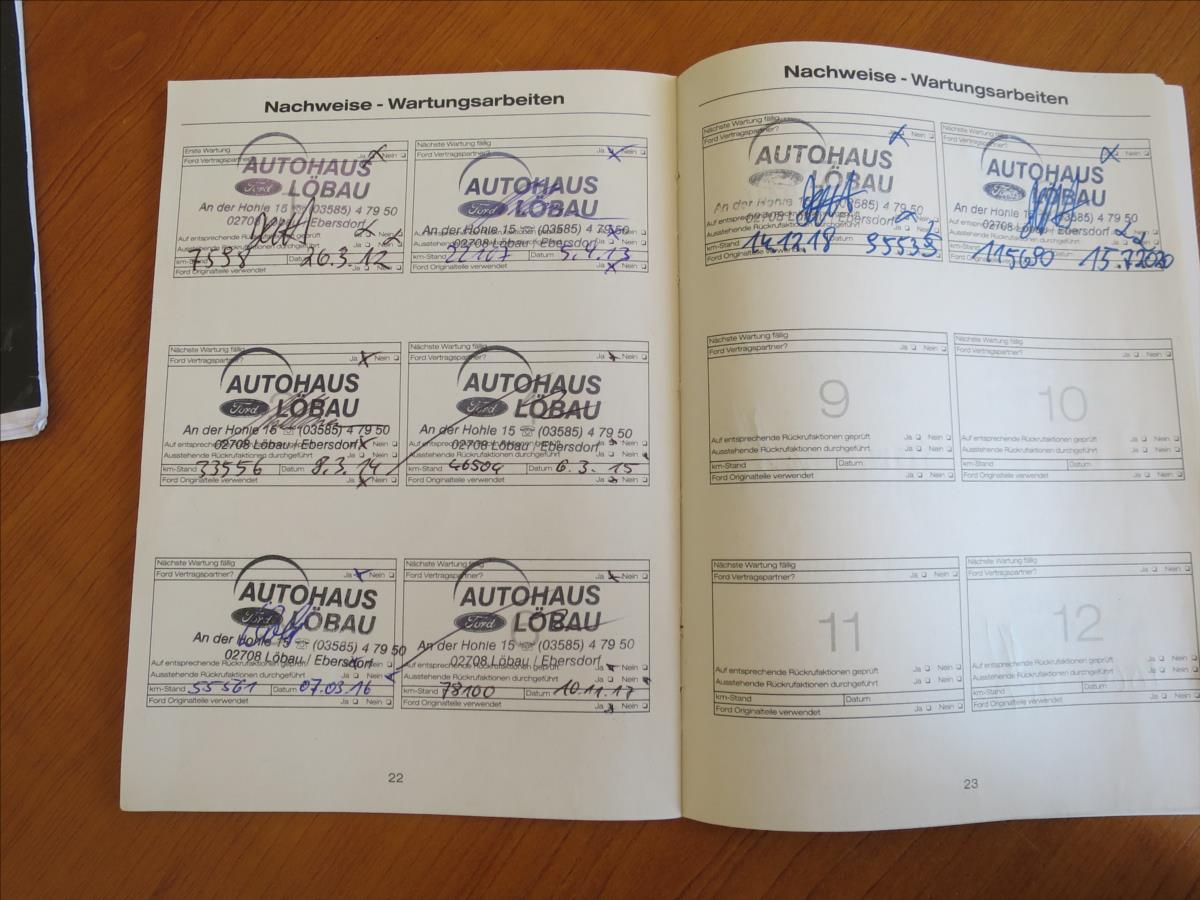 Nachweise - Wartungsarbeiten
Erste Wartung
Ford Vertragspartner? Ja Nein
AUTOHAUS
Ford LÖBAU
An der Hohle 15 ☏ (03585) 4 79 50
02708 Löbau / Ebersdorf
Auf entsprechende Rückrufaktionen geprüft
km-Stand Datum 26.3.12
Ford Originalteile verwendet Ja Nein
Nächste Wartung fällig
Ford Vertragspartner? Ja Nein
AUTOHAUS
Ford LÖBAU
An der Hohle 15 ☏ (03585) 4 79 50
02708 Löbau / Ebersdorf
km-Stand 22107 Datum 5.4.13
Ford Originalteile verwendet Ja Nein
Nächste Wartung fällig
Ford Vertragspartner? Ja Nein
AUTOHAUS
Ford LÖBAU
An der Hohle 15 ☏ (03585) 4 79 50
02708 Löbau / Ebersdorf
Ausstehende Rückrufaktionen durchgeführt Ja Nein
km-Stand 33556 Datum 8.3.14
Ford Originalteile verwendet Ja Nein
Nächste Wartung fällig
Ford Vertragspartner? Ja Nein
AUTOHAUS
Ford LÖBAU
An der Hohle 15 ☏ (03585) 4 79 50
02708 Löbau / Ebersdorf
Ausstehende Rückrufaktionen durchgeführt Ja Nein
km-Stand 46504 Datum 6.3.15
Ford Originalteile verwendet Ja Nein
Nächste Wartung fällig
Ford Vertragspartner? Ja Nein
AUTOHAUS
Ford LÖBAU
An der Hohle 15 ☏ (03585) 4 79 50
02708 Löbau / Ebersdorf
Auf entsprechende Rückrufaktionen geprüft Nein
Ausstehende Rückrufaktionen durchgeführt Ja Nein
km-Stand 55561 Datum 07.03.16
Ford Originalteile verwendet Ja Nein
Nächste Wartung fällig
Ford Vertragspartner? Ja Nein
AUTOHAUS
Ford LÖBAU
An der Hohle 15 ☏ (03585) 4 79 50
02708 Löbau / Ebersdorf
Auf entsprechende Rückrufaktionen geprüft Ja Nein
Ausstehende Rückrufaktionen durchgeführt Ja Nein
km-Stand 78100 Datum 10.11.17
Ford Originalteile verwendet Ja Nein
22
Nachweise - Wartungsarbeiten
Nächste Wartung fällig
Ford Vertragspartner? Ja Nein
AUTOHAUS
LÖBAU
An der Hohle 15 (03585) 4 79 50
02708 Löbau / Ebersdorf
Auf entsprechende Rückrufaktionen geprüft
km-Stand 14.12.18 95535
Ford Originalteile verwendet Ja Nein
Nächste Wartung fällig
Ford Vertragspartner? Nein
AUTOHAUS
Ford LÖBAU
An der Hohle 15 (03585) 4 79 50
02708 Löbau / Ebersdorf
km-Stand 115690 Datum 15.7.2020
Ford Originalteile verwendet Ja Nein
Nächste Wartung fällig
Ford Vertragspartner? Ja Nein
9
Auf entsprechende Rückrufaktionen geprüft Ja Nein
Ausstehende Rückrufaktionen durchgeführt Ja Nein
km-Stand Datum
Ford Originalteile verwendet Ja Nein
Nächste Wartung fällig
Ford Vertragspartner? Ja Nein
10
Auf entsprechende Rückrufaktionen geprüft Ja Nein
Ausstehende Rückrufaktionen durchgeführt Ja Nein
km-Stand Datum
Ford Originalteile verwendet Ja Nein
Nächste Wartung fällig
Ford Vertragspartner? Ja Nein
11
Auf entsprechende Rückrufaktionen geprüft Ja Nein
Ausstehende Rückrufaktionen durchgeführt Ja Nein
km-Stand Datum
Ford Originalteile verwendet Ja Nein
Nächste Wartung fällig
Ford Vertragspartner? Ja Nein
12
Auf entsprechende Rückrufaktionen geprüft Ja Nein
Ausstehende Rückrufaktionen durchgeführt Ja Nein
km-Stand Datum
Ford Originalteile verwendet Ja Nein
23